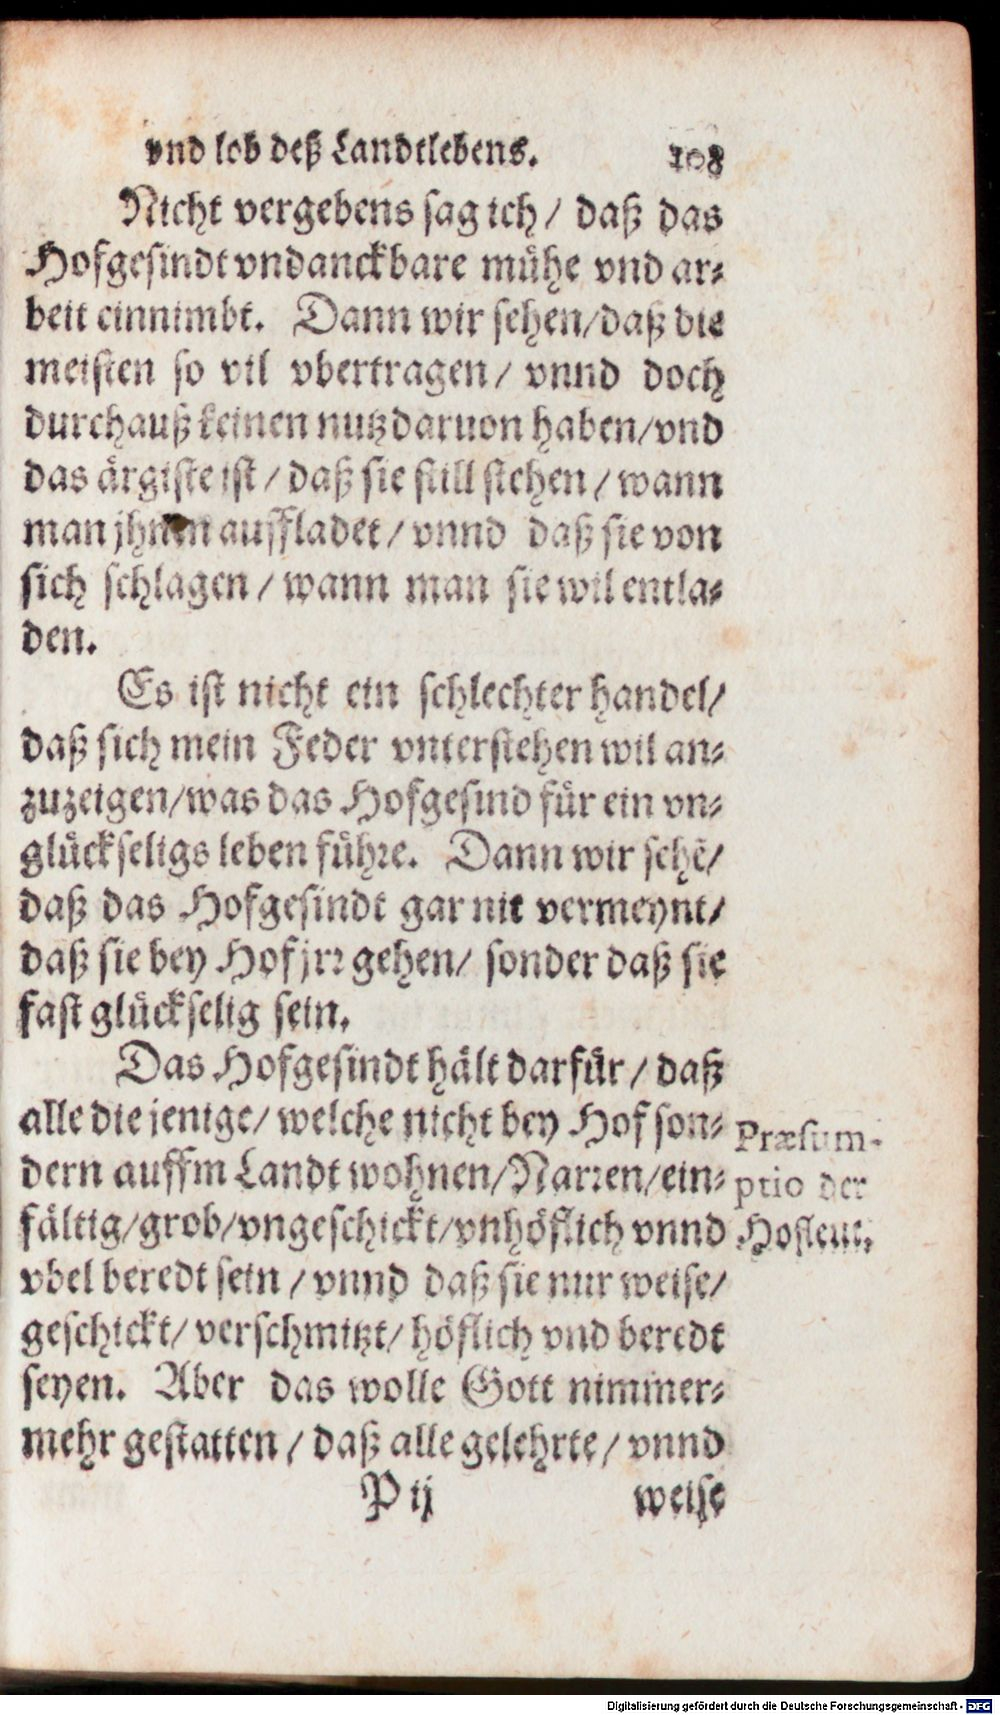 vnd lob deß Landtlebens. 108
Nicht vergebens sag ich / daß das
Hofgesindt vndanckbare mühe vnd ar-
beit einnimbt. Dann wir sehen/daß die
meisten so vil vbertragen / vnnd doch
durchauß keinen nutz daruon haben/vnd
das ärgiste ist / daß sie still stehen / wann
man jhnen auffladet / vnnd daß sie von
sich schlagen / wann man sie wil entla-
den.
Es ist nicht ein schlechter handel/
daß sich mein Feder vnterstehen wil an-
zuzeigen/was das Hofgesind für ein vn-
glückseligs leben führe. Dann wir sehē/
daß das Hofgesindt gar nit vermeynt/
daß sie bey Hof jrr gehen/ sonder daß sie
fast glückselig sein.
Das Hofgesindt hält darfür / daß
alle die jenige/ welche nicht bey Hof son-
dern auffm Landt wohnen/Narren/ein-
fältig/grob/vngeschickt/vnhöflich vnnd
vbel beredt sein / vnnd daß sie nur weise/
geschickt/ verschmitzt/ höflich vnd beredt
seyen. Aber das wolle Gott nimmer-
mehr gestatten / daß alle gelehrte / vnnd
Præsum-
ptio der
Hofleut.
P ij weise
Digitalisierung gefördert durch die Deutsche Forschungsgemeinschaft - DFG